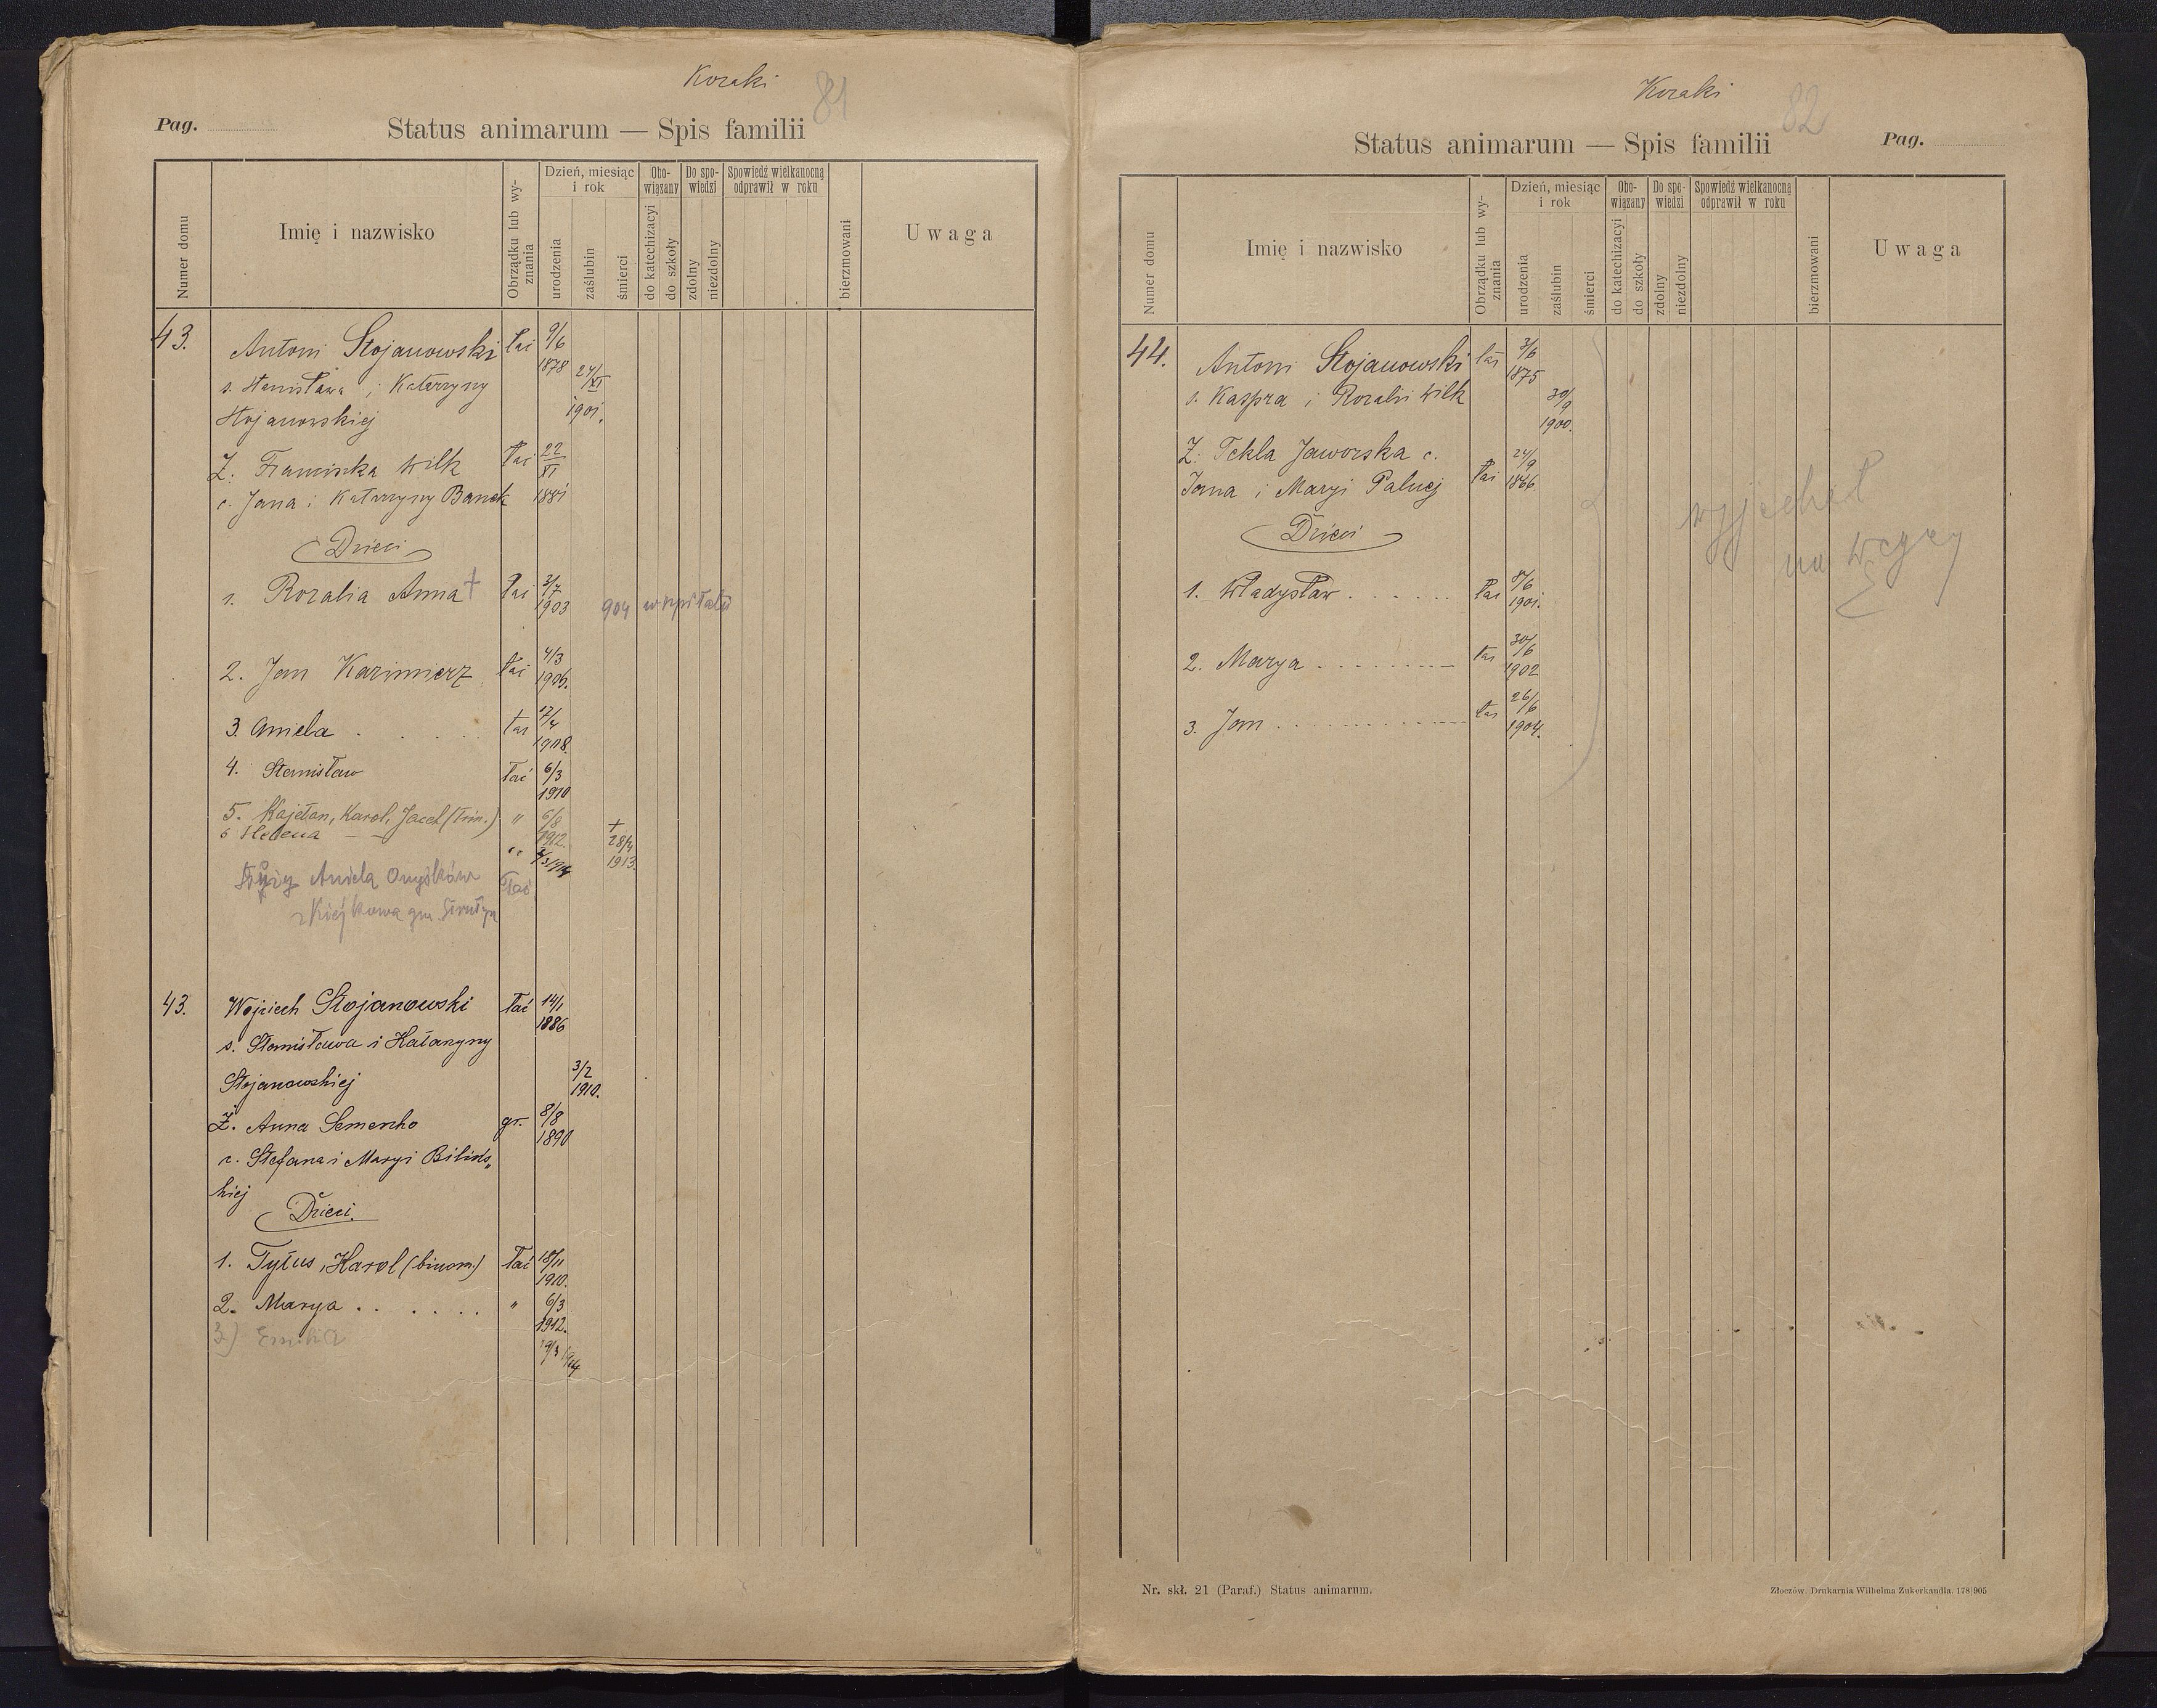 Koraki
81
Pag.
Status animarum — Spis familii
Numer domu
Imię i nazwisko
Obrządku lub wy-
znania
Dzień, miesiąc
i rok
urodzenia
zaślubin
śmierci
Obo-
wiązany
do katechizacyi
do szkoły
Do spo-
wiedzi
zdolny
niezdolny
Spowiedź wielkanocną
odprawił w roku
bierzmowani
Uwaga
43. Antoni Stojanowski łac 9/6
1878 24/XI
s. Stanisława i Katarzyny
1901.
Stojanowskiej
Ż. Franciszka Wilk łac 22
XI
c. Jana i Katarzyny Banek 1881
Dzieci
1. Rozalia Anna † łac 3/7
1903 904 w szpitalu
2. Jan Kazimierz łac 4/3
1906.
3. Aniela . . . . łac 17/4
1908.
4. Stanisław łać 6/3
1910
5. Kajetan, Karol, Jacek (trin.) " 6/8
1912. † 28/4
1913.
6 Helena — "
Aniela
łać
43. Wojciech Stojanowski łać 14/1
1886
s. Stanisława i Katarzyny
Stojanowskiej 3/2
1910.
Ż. Anna Semenko gr. 8/8
1890
c. Stefana i Maryi Bilińs„
kiej
Dzieci.
1. Tytus, Karol (binom.) łać 18/11
1910.
2. Marya . . . . . . " 6/3
1912.
3.) Emilia
Koraki
82
Status animarum — Spis familii
Pag.
Numer domu
Imię i nazwisko
Obrządku lub wy-
znania
Dzień, miesiąc
i rok
urodzenia
zaślubin
śmierci
Obo-
wiązany
do katechizacyi
do szkoły
Do spo-
wiedzi
zdolny
niezdolny
Spowiedź wielkanocną
odprawił w roku
bierzmowani
Uwaga
44. Antoni Stojanowski łac 3/6
1875
s. Kaspra i Rozalii Wilk 30/9
1900.
Ż. Tekla Jaworska c. 24/9
Jana i Maryi Palucj łac 1866
Dzieci
wyjechał
na Węgry
1. Władysław . . . . . . łac 8/6
1901.
2. Marya . . . . . . . . łac 30/6
1902
3. Jan . . . . . . . . . łac 26/6
1904.
Nr. skł. 21 (Paraf.) Status animarum.
Złoczów. Drukarnia Wilhelma Zukerkandla. 178|905